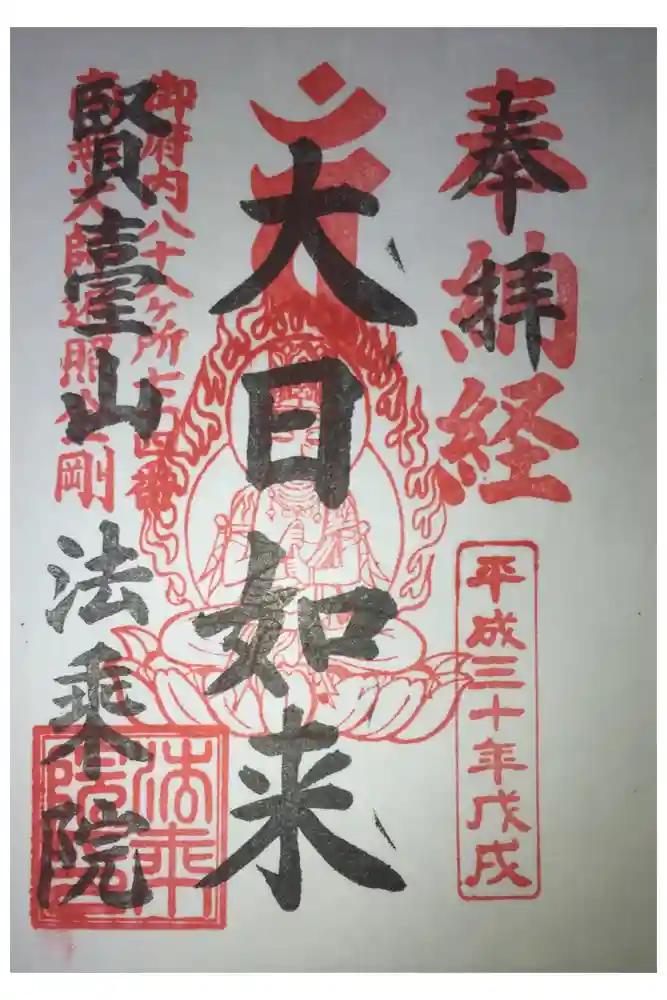 奉拝
奉納経
平成三十年戊戌
大日如来
御府内八十八ヶ所七十四番
賢臺山 法乗院
南無大師遍照金剛
法乗院